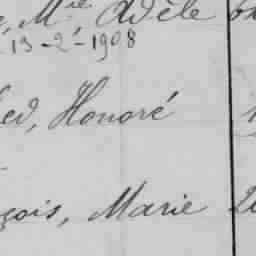 , Mie Adèle
13-2-1908
ed, Honoré
çois, Marie